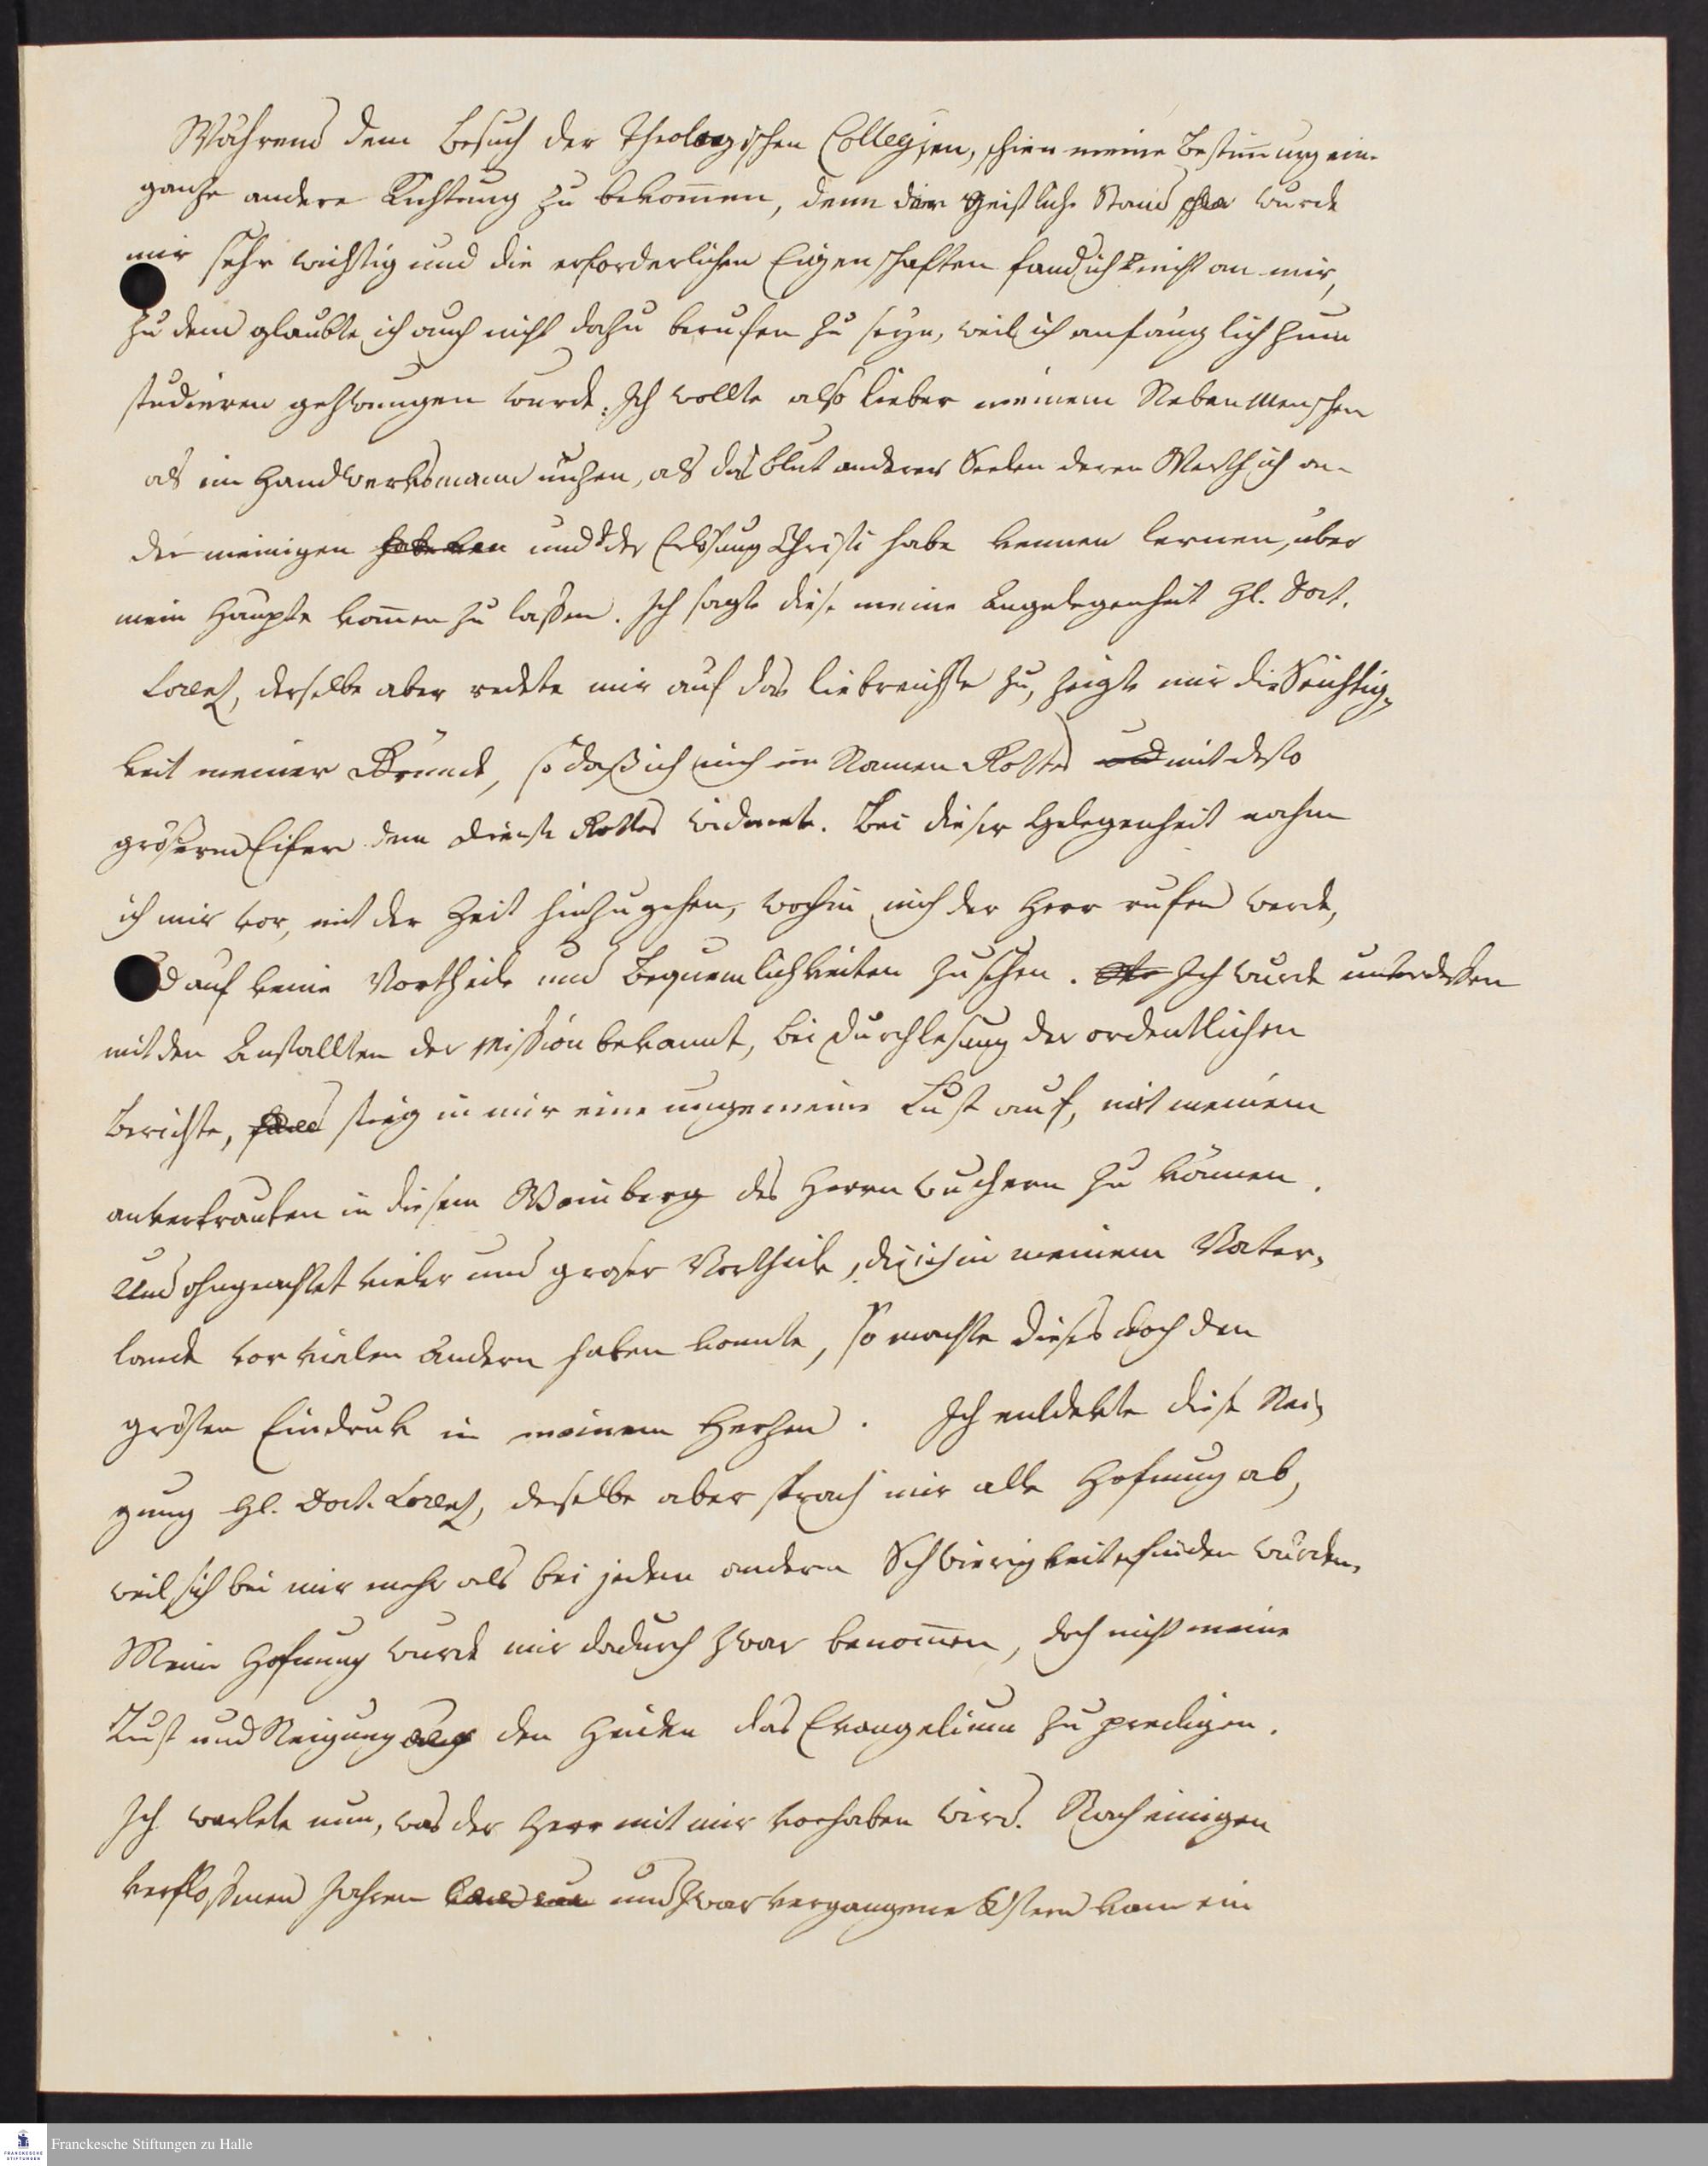 Während dem Besuch der Theologischen Collegien, schien meine Bestim̄ung eine
ganze andere Richtung zu bekom̄en, denn der geistliche Stand wurde
mir sehr wichtig und die erforderlichen Eigenschaften fand ich nicht an mir,
zu dem glaubte ich auch nicht dazu berufen zu seyn, weil ich anfänglich zum
studieren gezwungen wurde. Ich wollte also lieber meinem Nebenmenschen
als ein Handwerksmann nuzen, als das Blut anderer Seelen deren Werth ich an
der meinigen und der Erlösung Christi habe kennen lernen, über
mein Haupte kom̄en zu laßen. Ich sagte diese meine Angelegenheit Hl. Doct.
Lorenz, derselbe aber redete mir auf das liebreichste zu, zeigte mir die Seichtig-
keit meiner Gründe, so daß ich mich im Namen Gottes und mit desto
größerm Eifer dem Dienste Gottes widmete. Bei dieser Gelegenheit nahm
ich mir vor, mit der Zeit hinzugehen, wohin mich der Herr rufen werde,
und auf keine Vortheile und Bequemlichkeiten zu sehen. Ich wurde unterdeßen
mit den Anstallten der Mission bekannt, bei Durchlesung der ordentlichen
Berichte, stieg in mir eine ungemeine Lust auf, mit meinem
anvertrauten in diesem Weinberg des Herrn wuchern zu können.
Und ohngeachtet vieler und groser Vortheile, die ich in meinem Vater-
lande vor vielen andern haben konnte, so machte dieses doch den
grösten Eindruk in meinem Herzen. Ich entdekte diese Nei-
gung Hl. Doct. Lorenz, derselbe aber sprach mir alle Hofnung ab,
weil sich bei mir mehr als bei jedem andern Schwierigkeiten finden würden.
Meine Hofnung wurde mir dadurch zwar benom̄en, doch nicht meine
Lust und Neigung den Heiden das Evangelium zu predigen.
Ich wartete nun, was der Herr mit mir vorhaben wird. Nach einigen
verfloßenen Jahren und zwar vergangene Ostern kam ein
Franckesche Stiftungen zu Halle